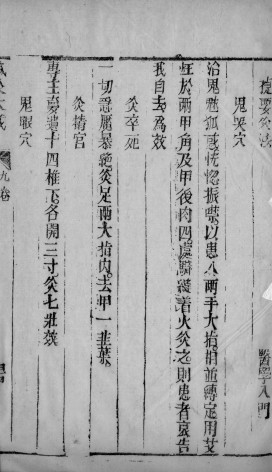 捷要灸法
醫學入門
鬼哭穴
治鬼魅狐惑恍惚振噤以患人兩手大指相並縛定用艾
炷於兩甲角及甲後肉四處騎縫着火灸之則患者哀告
我自去為效
灸卒死
一切急魘暴絕灸足兩大指內去甲一韭葉
灸精宮
專主夢遺十四椎下各開三寸灸七壯效
鬼眼穴
九卷